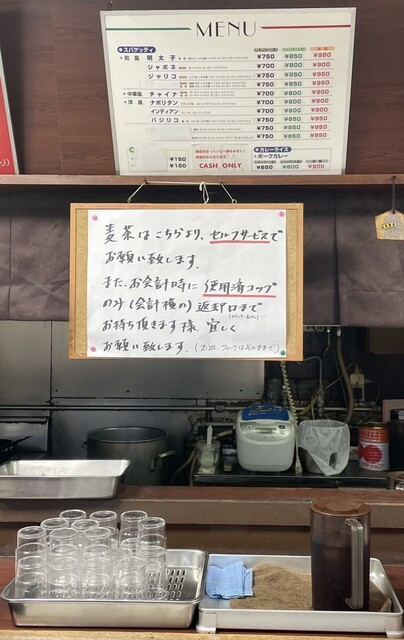 MENU
●スパゲッティ
●和風 明太子 ¥750 ¥850 ¥950
ジャポネ ¥700 ¥800 ¥900
ジャリコ ¥750 ¥850 ¥950
●中華風 チャイナ ¥700 ¥800 ¥900
●洋風 ナポリタン ¥700 ¥800 ¥900
インディアン ¥700 ¥800 ¥900
バジリコ ¥750 ¥850 ¥950
¥750 ¥850 ¥950
¥150
¥150
CASH ONLY
●カレーライス
ポークカレー
¥650 ¥800 ¥900
麦茶はこちらより、セルフサービスで
お願い致します。
また、お会計時に使用済コップ
のみ(会計横の)返却口まで
お持ち頂きます様、宜しく
お願い致します。(お皿、フォークはそのままで)